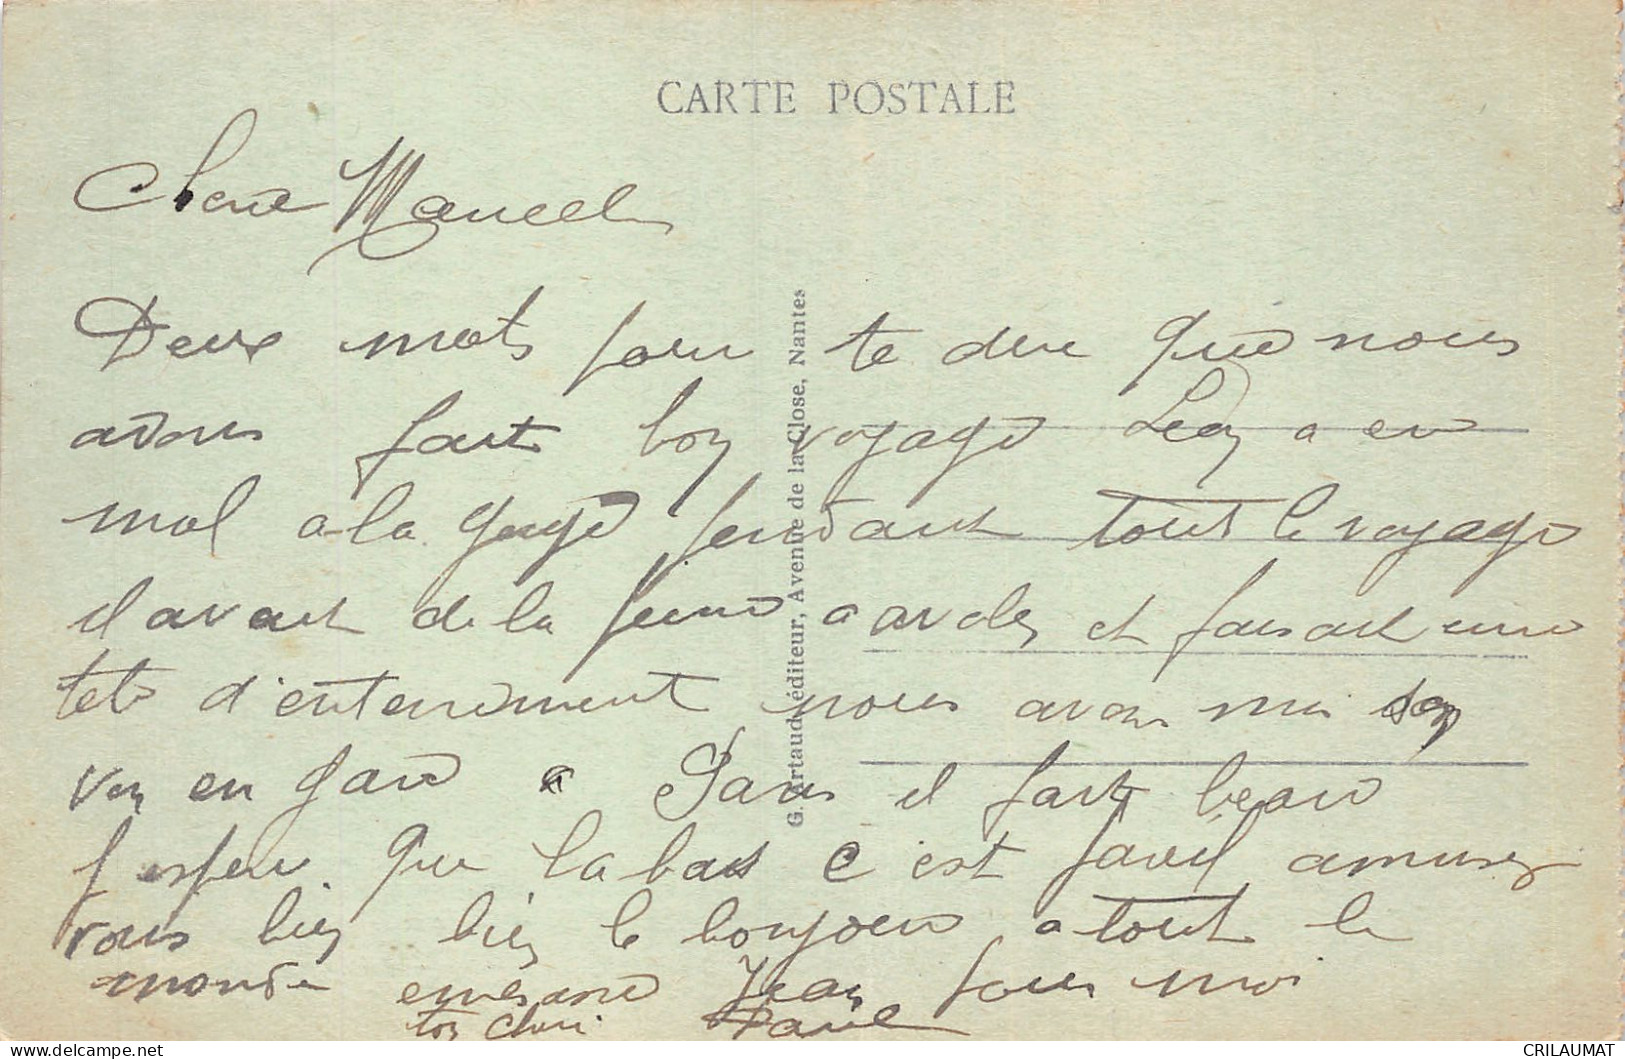 CARTE POSTALE
Chere Marcel
Deux mots pour te dire que nous
avons fait bon voyage Leon a eu
mal a la gorge pendant tout le voyage
il avait de la peine a avaler et faisait une
tete d'enterrement nous avons mis
en gare a Paris il fait beau
j espere que la bas c'est pareil amusez
vous bien bien le bonjour a tout le
monde embrasse Jean pour moi
ton cheri Paul
G. Artaud, éditeur, Avenue de la Close, Nantes
CRILAUMAT